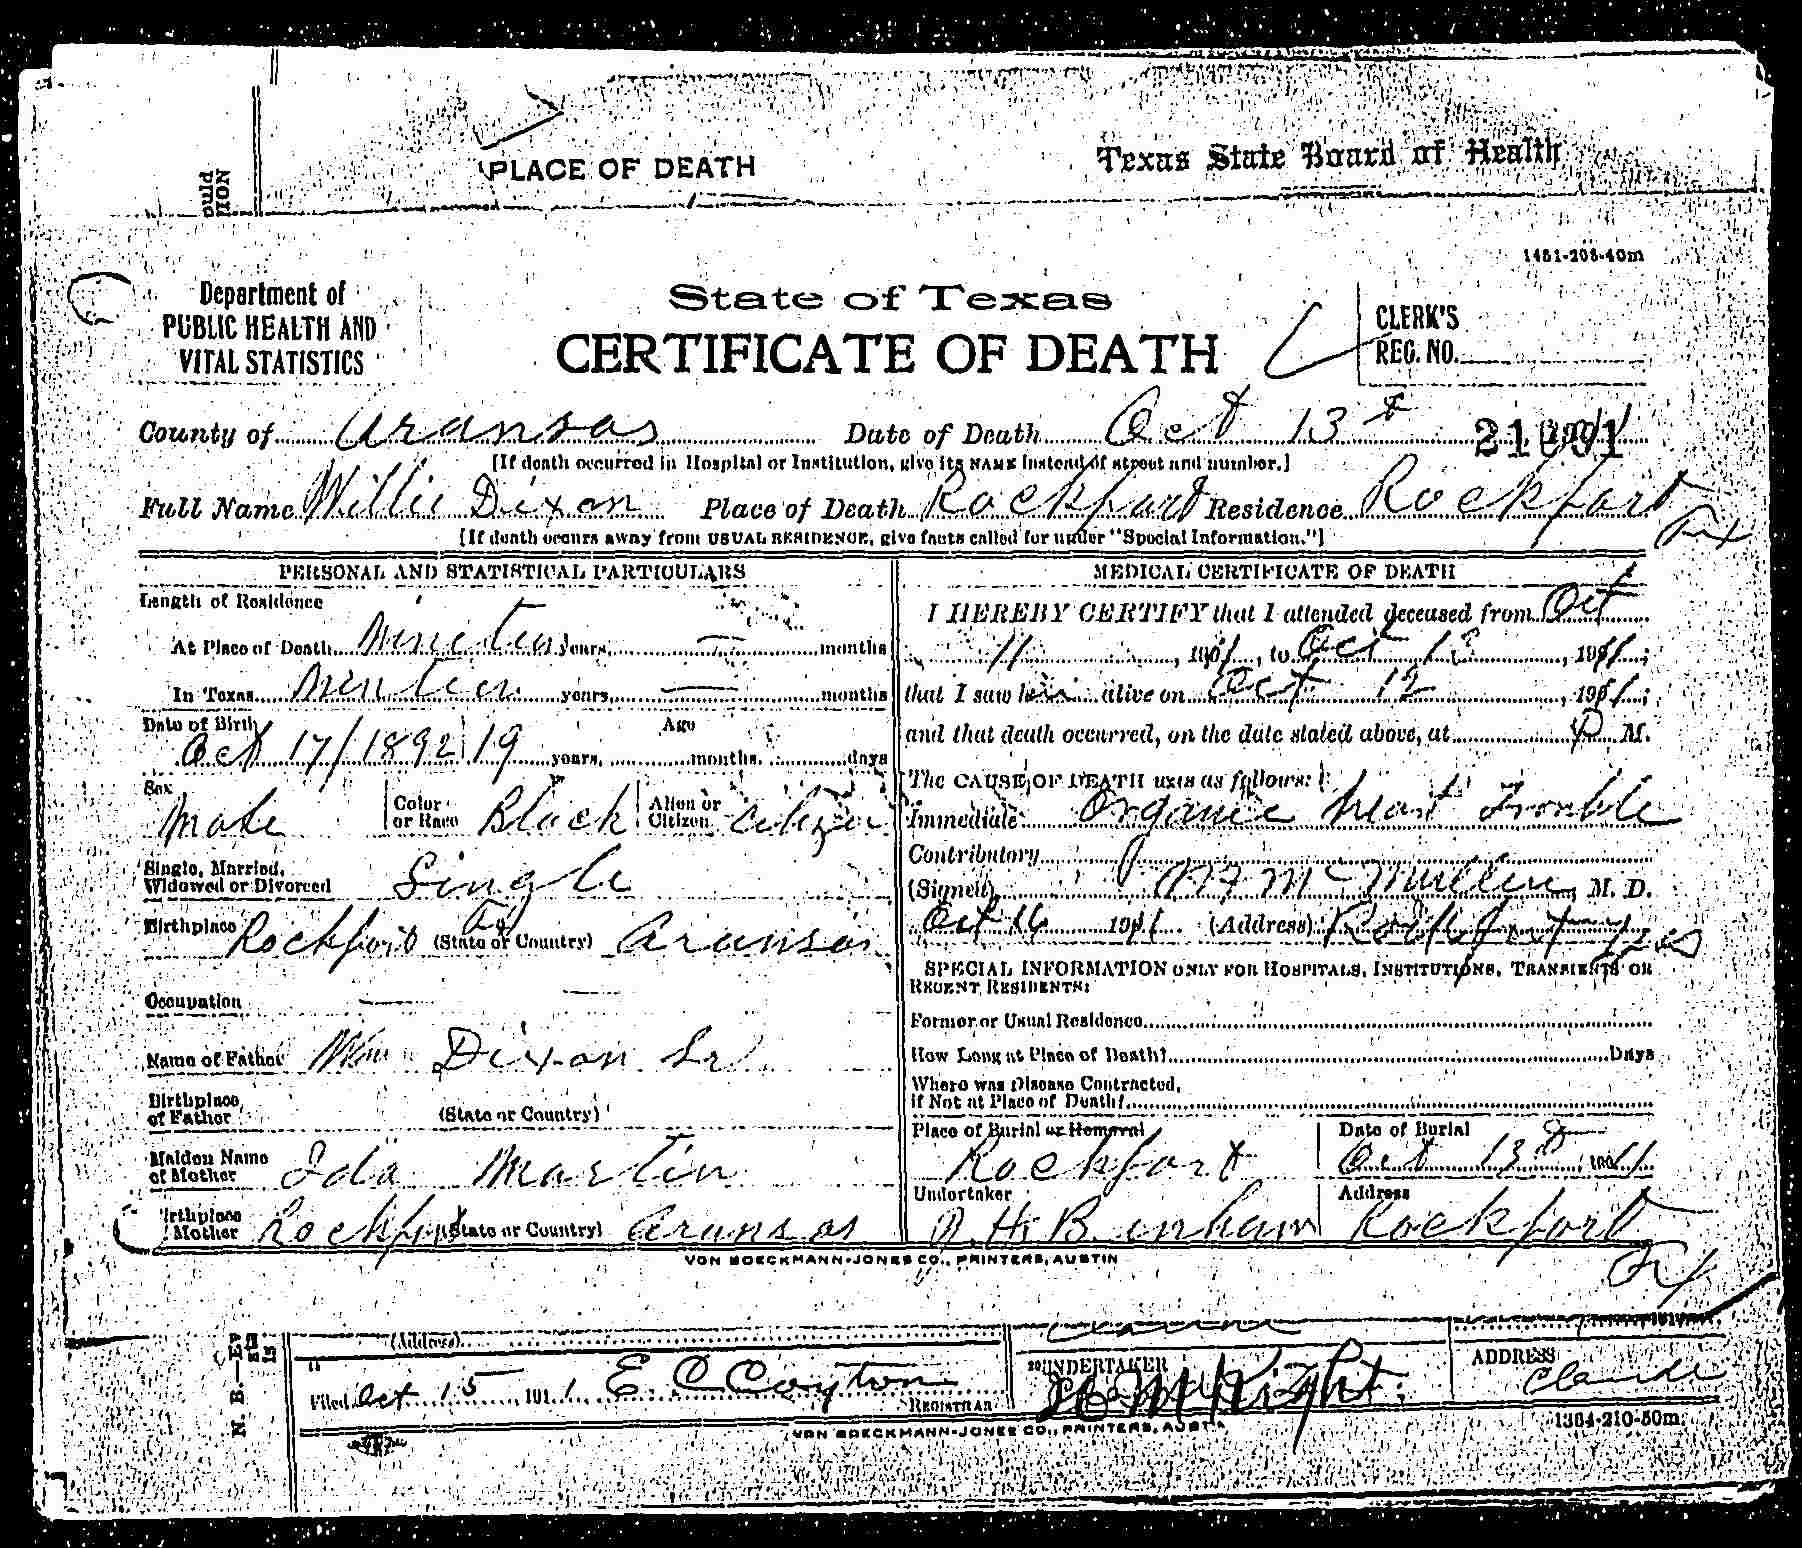 PLACE OF DEATH
Texas State Board of Health
ould
TION
1451-208-40m
Department of
PUBLIC HEALTH AND
VITAL STATISTICS
State of Texas
CERTIFICATE OF DEATH
CLERK'S
REG. NO.
County of Aransas Date of Death Oct 13th 21091
[If death occurred in Hospital or Institution, give its NAME instead of street and number.]
Full Name Willie Dixon Place of Death Rockport Residence Rockport
Tex
[If death occurs away from USUAL RESIDENCE, give facts called for under "Special Information."]
PERSONAL AND STATISTICAL PARTICULARS
Length of Residence
At Place of Death years, — months
In Texas years, — months
Date of Birth Age
Oct 17/1892 19 years, months, days
Sex
Male Color or Race Black Alien or Citizen Citizen
Single, Married,
Widowed or Divorced Single
Birthplace Rockport Tex (State or Country) Aransas
Occupation — —
Name of Father Wm Dixon Sr
Birthplace
of Father (State or Country)
Maiden Name
of Mother Ida Martin
Birthplace
Mother Rockport (State or Country) Aransas
MEDICAL CERTIFICATE OF DEATH
I HEREBY CERTIFY that I attended deceased from Oct
11, 1911, to Oct 13, 1911;
that I saw him alive on Oct 12, 1911;
and that death occurred, on the date stated above, at P. M.
The CAUSE OF DEATH was as follows:
Immediate Organic heart Trouble
Contributory
(Signed) McMullen, M. D.
Oct 16 1911. (Address) Rockport Tex
SPECIAL INFORMATION ONLY FOR HOSPITALS, INSTITUTIONS, TRANSIENTS OR
RECENT RESIDENTS:
Former or Usual Residence
How Long at Place of Death? Days
Where was Disease Contracted,
If Not at Place of Death?
Place of Burial or Removal Date of Burial
Rockport Oct 13th 1911
Undertaker Address
Rockport
Tex
VON BOECKMANN-JONES CO., PRINTERS, AUSTIN
N. B.—
(Address)
Filed Oct 15, 1911 E C Coyton REGISTRAR
20 UNDERTAKER
ADDRESS
Claude
VON BOECKMANN-JONES CO., PRINTERS, AUSTIN
1364-210-50m.